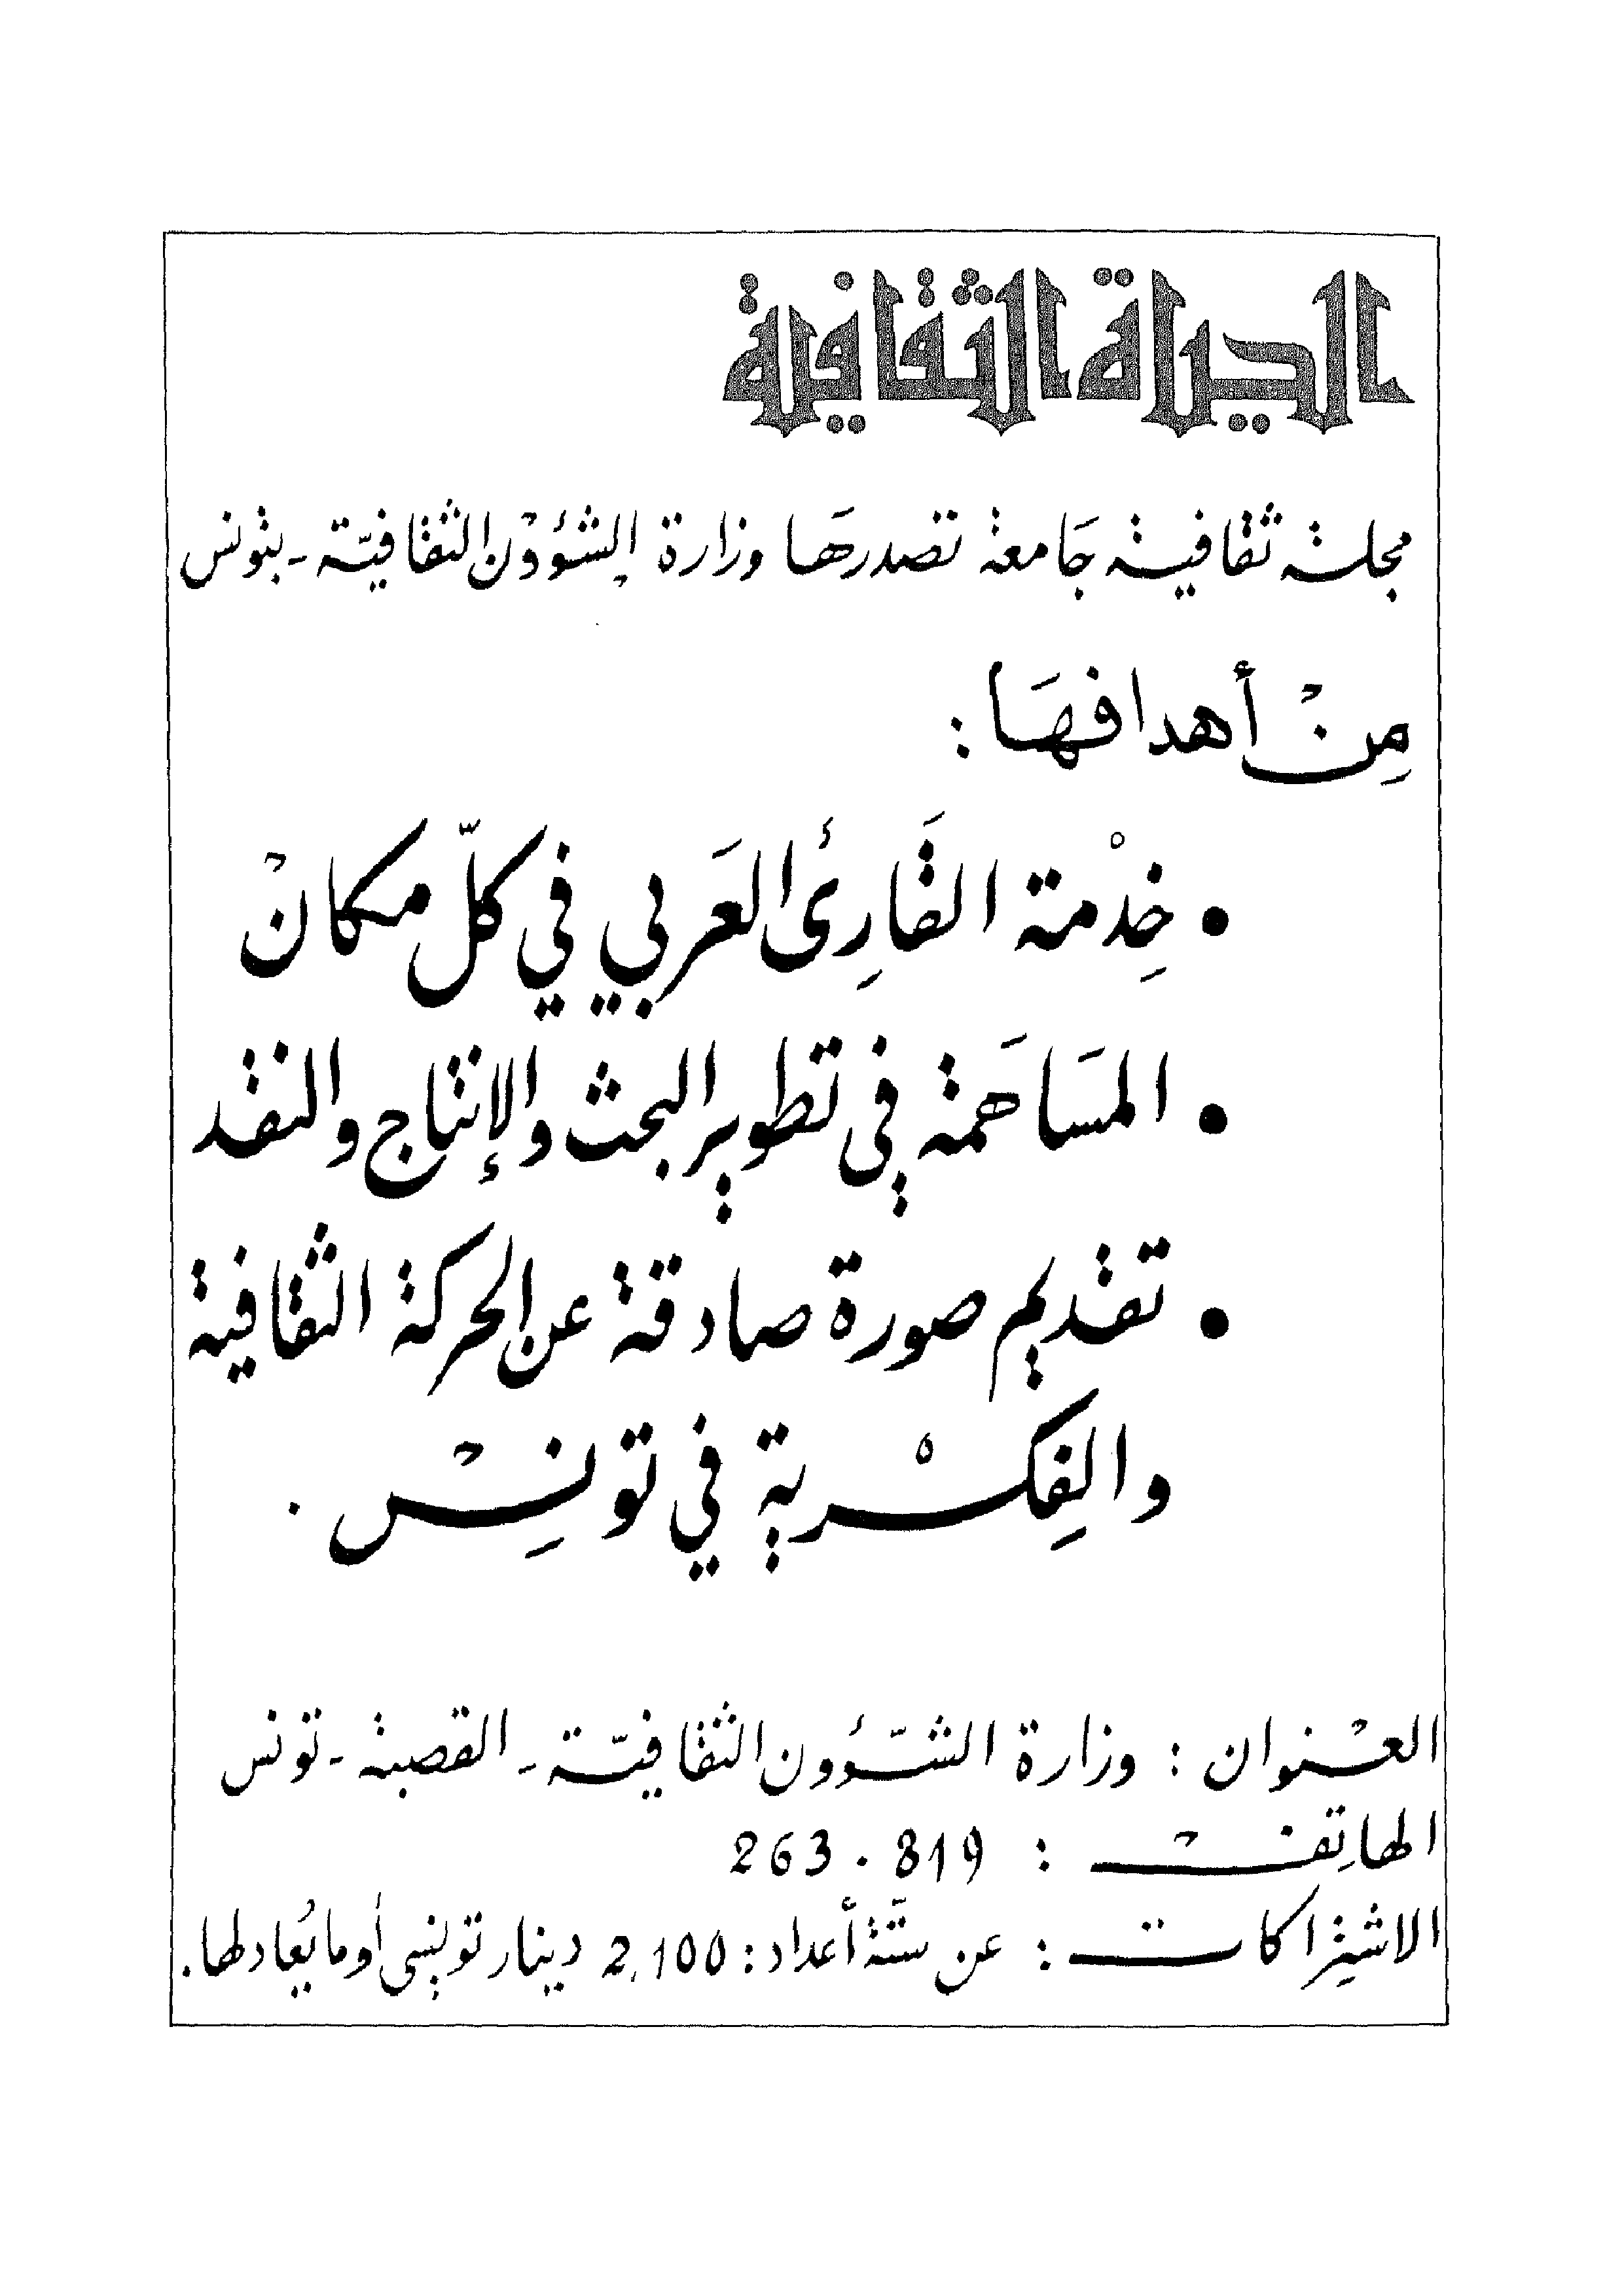 الحياة الثقافية
مجلة ثقافية جَامعة تصدرهَا وزارة الشؤوْن الثقافيّة - بتونس
مِنْ أهدافهَا :
• خِدْمة القَارِئ العَربي في كلّ مكانْ
• المسَاهَمة في تطوير البحث والإنتاج والنقد
• تقديم صورة صادقة عن الحركة الثقافية
والفِكْرية في تونِسْ .
العنْوان : وزارة الشّؤون الثقافيّة - القصبة - تونس
الهاتِفْ : 263.819
الاشتِراكات : عن ستَّة أعداد : 2,100 دينار تونسي أو ما يُعادلها .